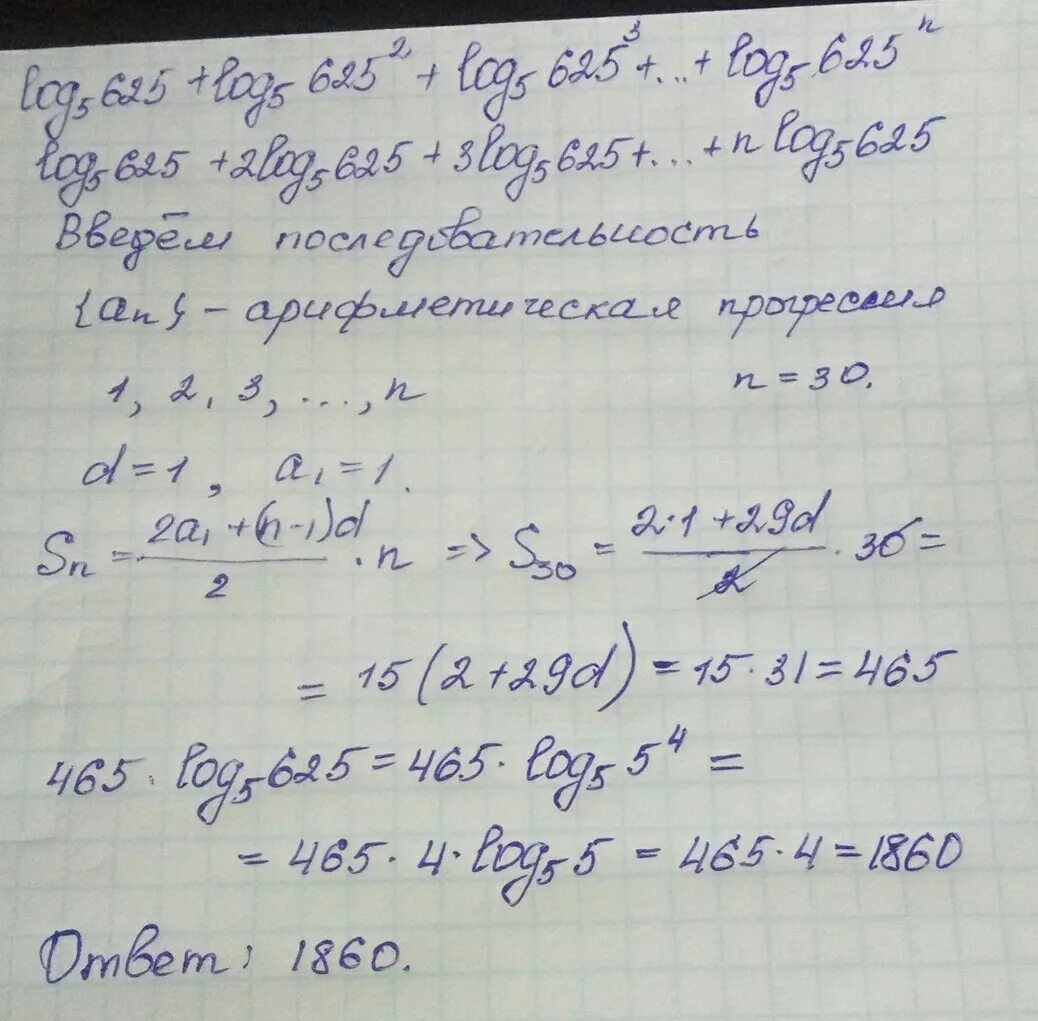 log₅625 + log₅625² + log₅625³ + ... + log₅625ⁿ
log₅625 + 2log₅625 + 3log₅625 + ... + n log₅625
Введём последовательность
{aₙ} – арифметическая прогрессия
1, 2, 3, ..., n n = 30.
d = 1, a₁ = 1.
Sₙ = (2a₁ + (n-1)d)/2 · n => S₃₀ = (2·1 + 29d)/2 · 30 =
= 15(2 + 29d) = 15 · 31 = 465
465 · log₅625 = 465 · log₅5⁴ =
= 465 · 4 · log₅5 = 465 · 4 = 1860
Ответ: 1860.